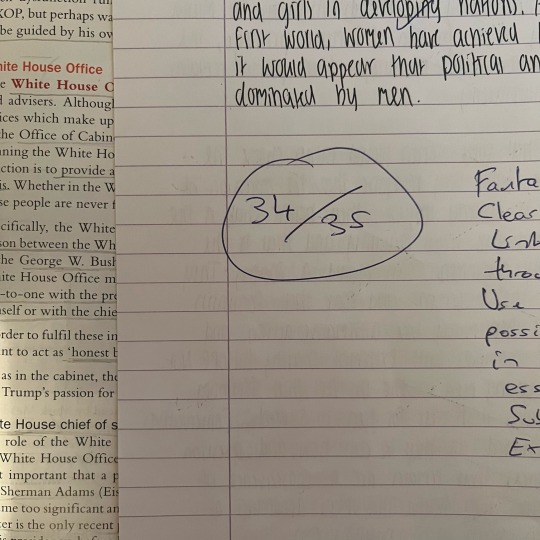 KOP, but perhaps wa
be guided by his ow
White House Office
White House O
advisers. Although
ices which make up
the Office of Cabin
ning the White Ho
ction is to provide a
is. Whether in the W
se people are never f
cifically, the White
son between the Wh
he George W. Bush
ite House Office m
-to-one with the pre
self or with the chie
rder to fulfil these in
nt to act as ‘honest b
as in the cabinet, the
Trump’s passion for
te House chief of s
role of the White
White House Office
t important that a p
Sherman Adams (Eis
me too significant an
er is the only recent
and girls in developing nations.
first world, women have achieved
it would appear that political an
dominated by men.
34/35
Fanta
Clear
Link
throu
Use
possi
in
ess
Su
Ex